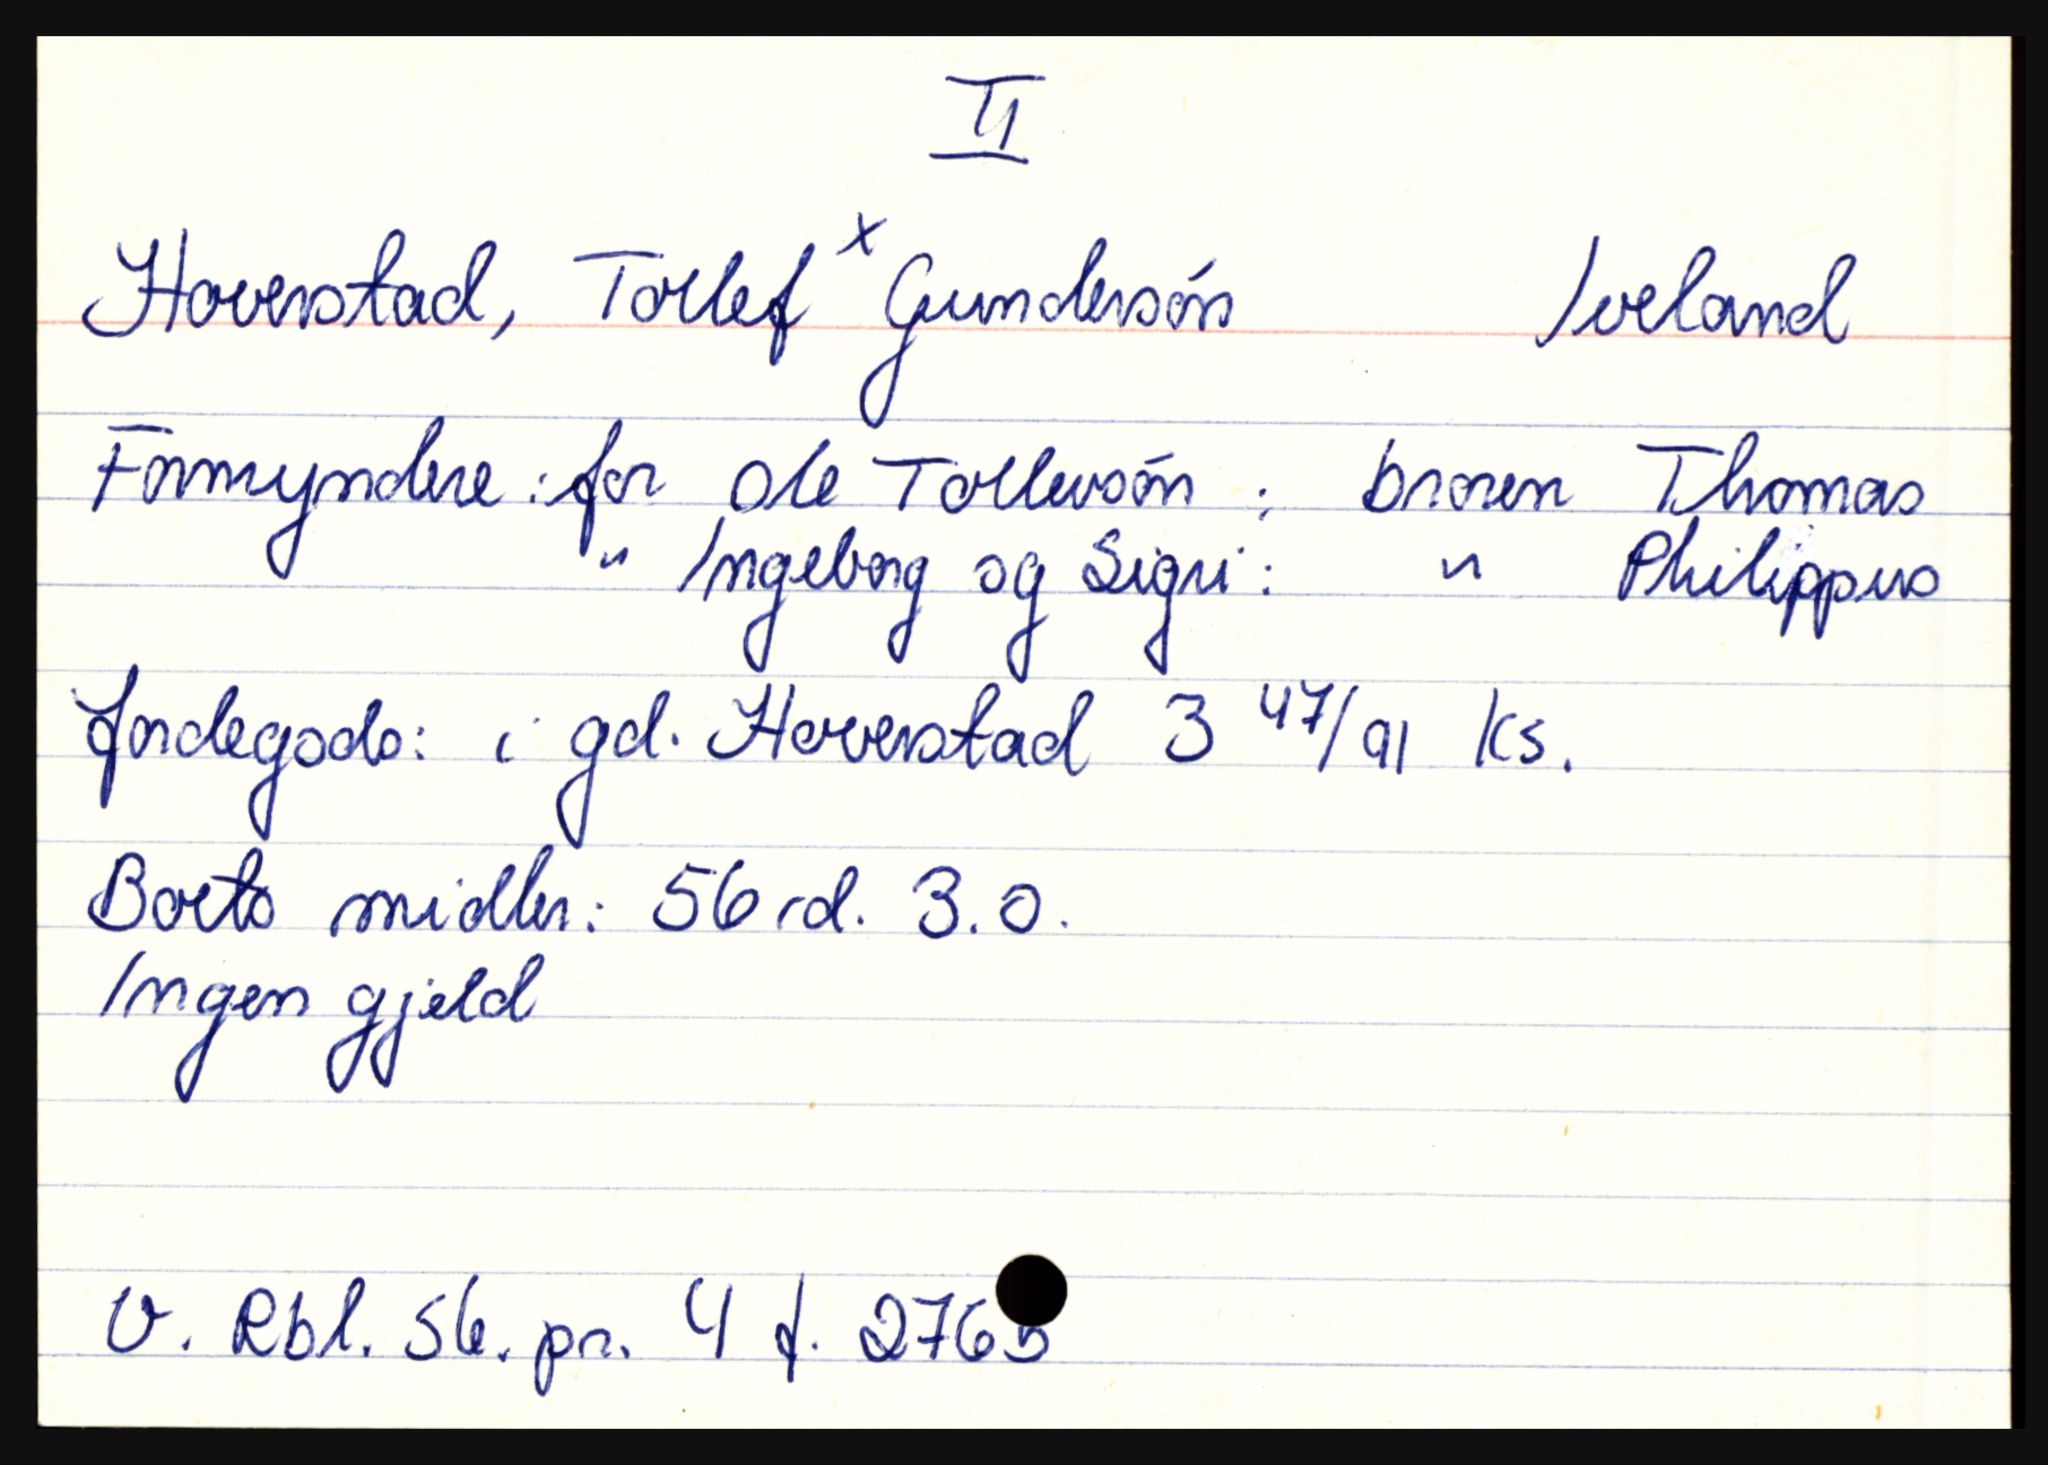 II
Hoverstad, Tollef x Gundersón Iveland
Formyndere: for Ole Tollevsón: broren Thomas
" Ingeborg og Sigri: " Philippus
Jordegods: i gd. Hoverstad 3 47/91 Ks.
Boets midler: 56 rd. 3. 0.
Ingen gjeld
V. Rbl. Sk. pr. 4 f. 276b